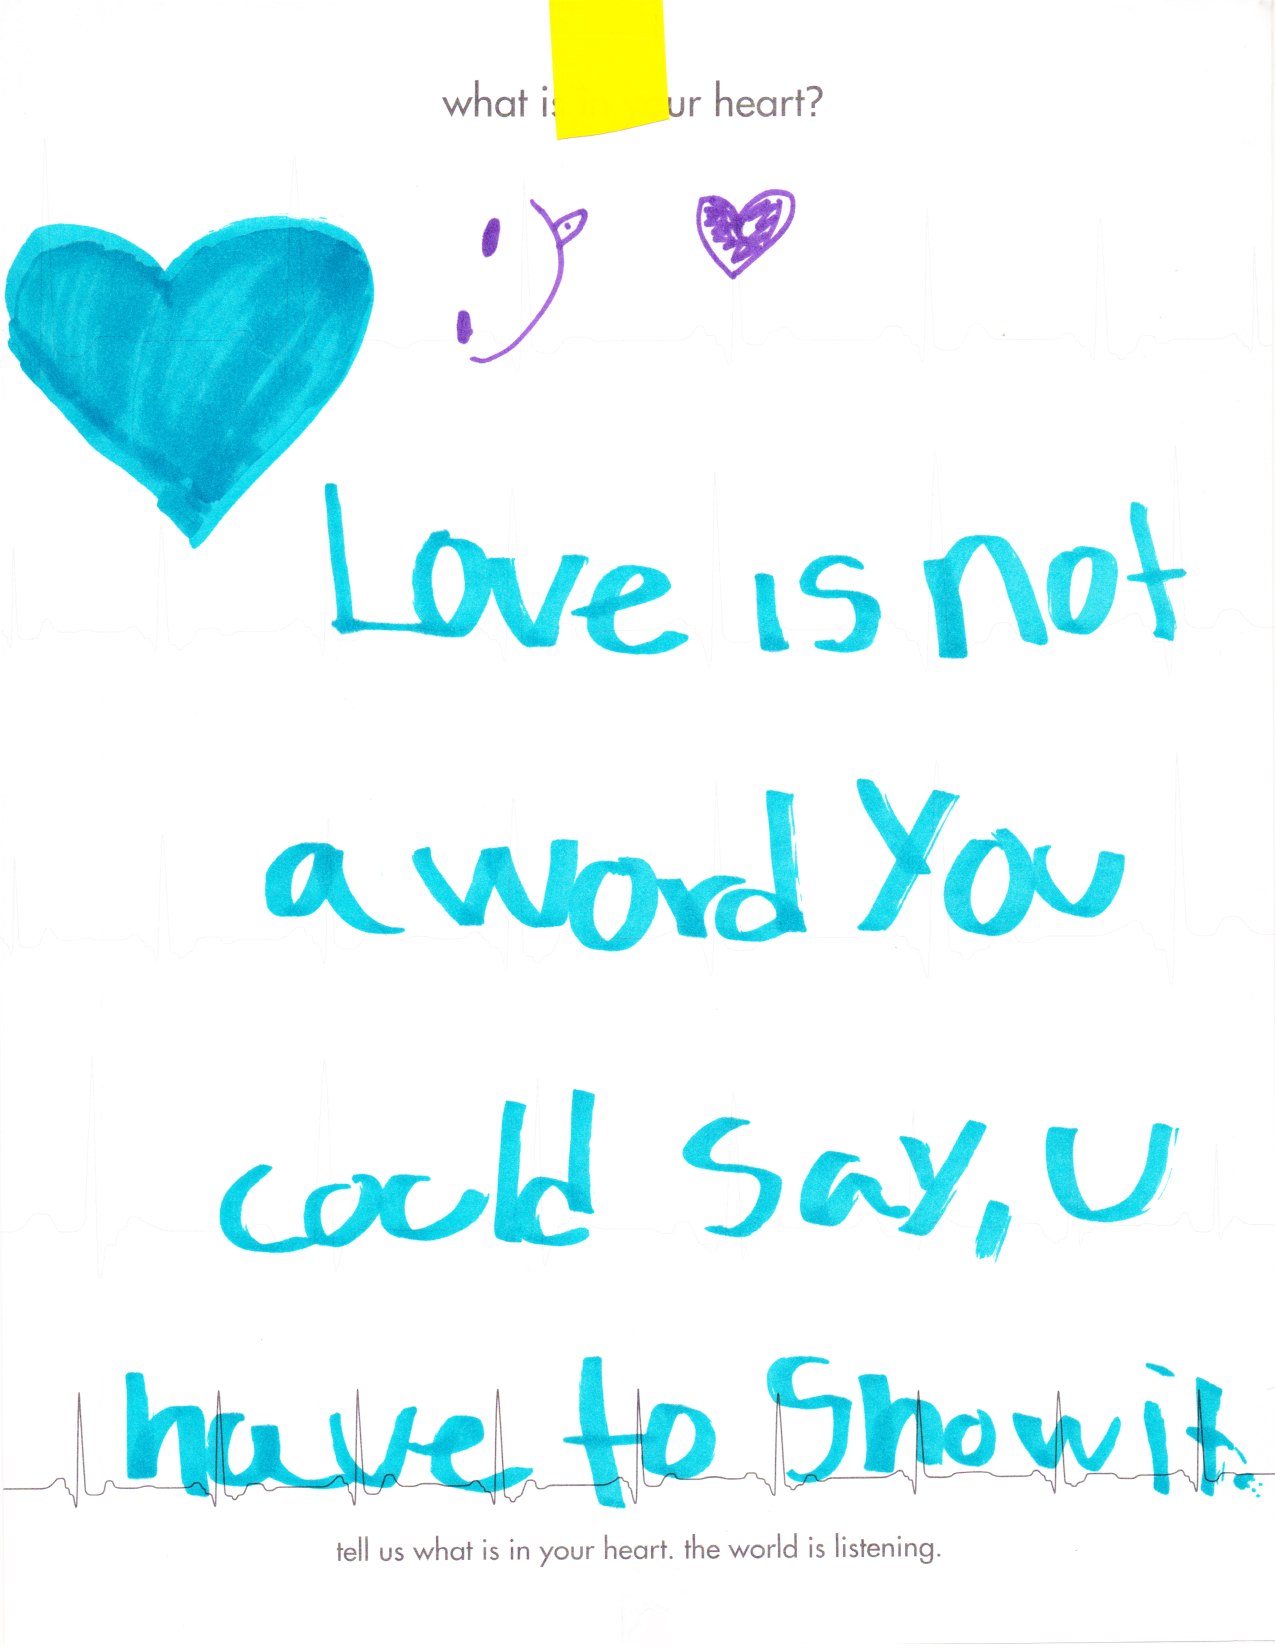 what is ur heart?
Love is not
a word You
could say, U
have to Show it.
tell us what is in your heart. the world is listening.